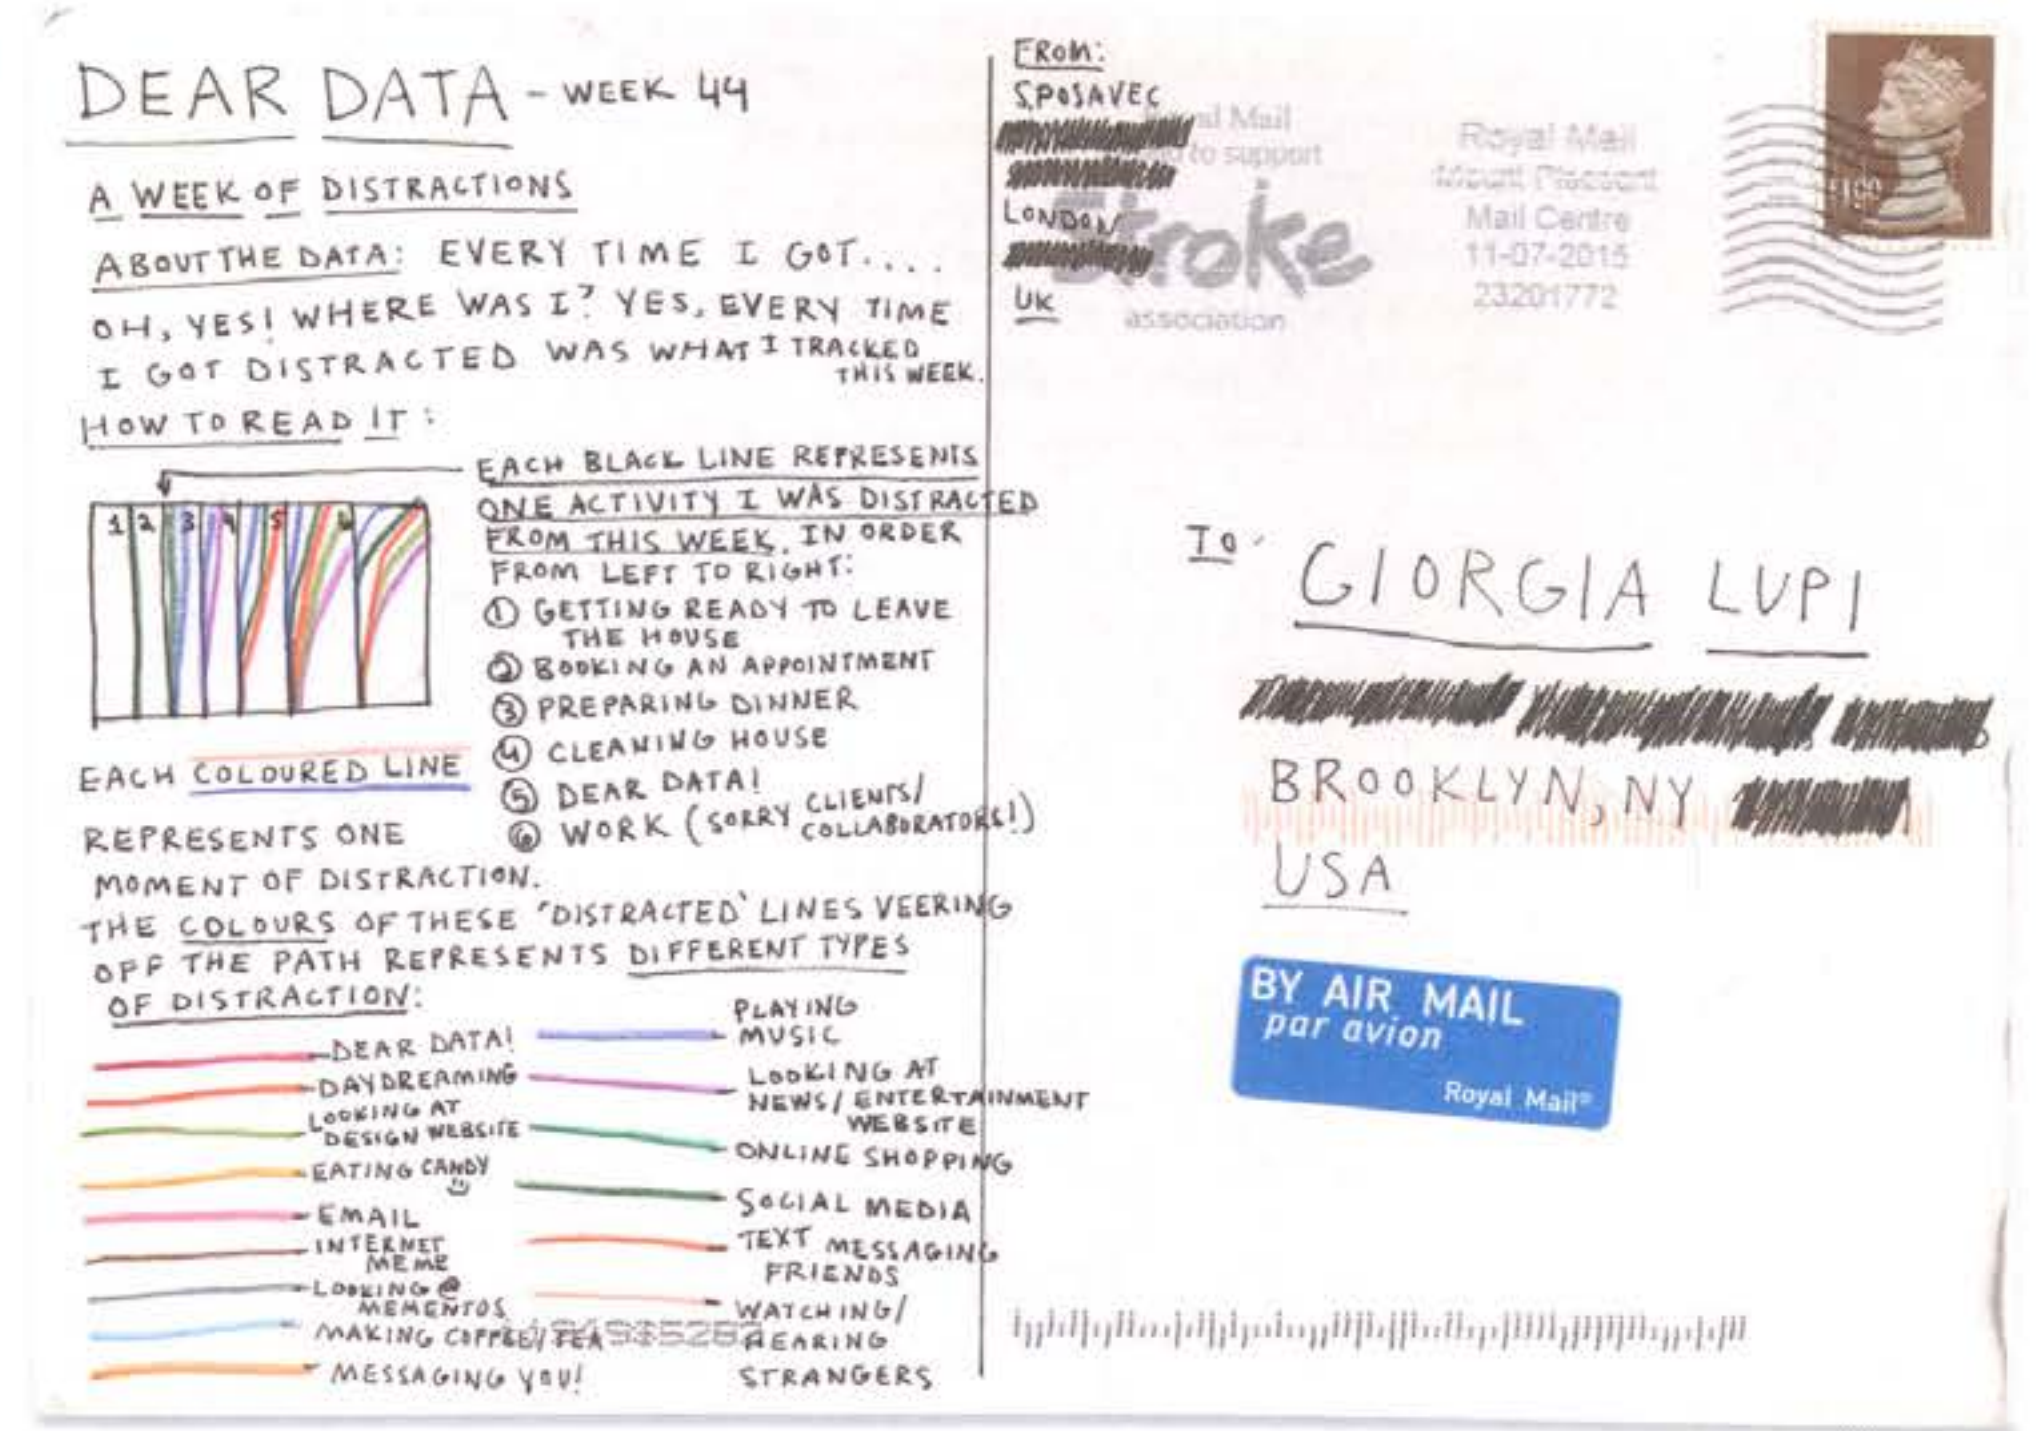 DEAR DATA - WEEK 44
A WEEK OF DISTRACTIONS
ABOUT THE DATA: EVERY TIME I GOT....
OH, YES! WHERE WAS I? YES, EVERY TIME
I GOT DISTRACTED WAS WHAT I TRACKED
THIS WEEK.
HOW TO READ IT:
EACH BLACK LINE REPRESENTS
ONE ACTIVITY I WAS DISTRACTED
FROM THIS WEEK, IN ORDER
FROM LEFT TO RIGHT:
① GETTING READY TO LEAVE
THE HOUSE
② BOOKING AN APPOINTMENT
③ PREPARING DINNER
④ CLEANING HOUSE
⑤ DEAR DATA!
⑥ WORK (SORRY CLIENTS/
COLLABORATORS!)
1 2 3 4 5 6
EACH COLOURED LINE
REPRESENTS ONE
MOMENT OF DISTRACTION.
THE COLOURS OF THESE 'DISTRACTED' LINES VEERING
OFF THE PATH REPRESENTS DIFFERENT TYPES
OF DISTRACTION:
DEAR DATA!
DAYDREAMING
LOOKING AT
DESIGN WEBSITE
EATING CANDY
EMAIL
INTERNET
MEME
LOOKING @
MEMENTOS
MAKING COFFEE/TEA
MESSAGING YOU!
PLAYING
MUSIC
LOOKING AT
NEWS/ENTERTAINMENT
WEBSITE
ONLINE SHOPPING
SOCIAL MEDIA
TEXT MESSAGING
FRIENDS
WATCHING/
HEARING
STRANGERS
FROM:
S.POSAVEC
LONDON
UK
Mail
to support
Stroke
association
Royal Mail
Mount Pleasant
Mail Centre
11-07-2015
23201772
TO:
GIORGIA LUPI
BROOKLYN, NY
USA
BY AIR MAIL
par avion
Royal Mail®